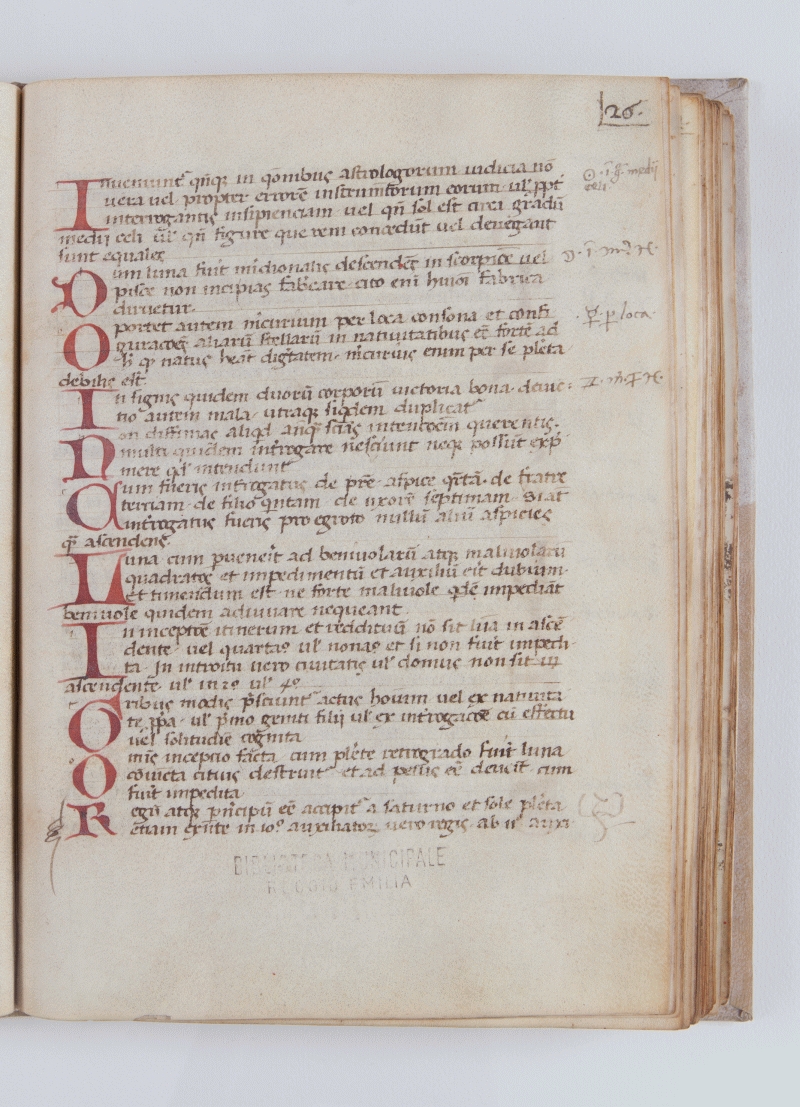 26.
Inueniunt qñqꝫ in oõnibus astrologorum iudicia nõ
uera uel propter errorẽ instrumẽtorum eorum ul' ꝓpt
interrogantis insipienciam uel qñ sol est circa gradũ
medii celi ul' qñ figure que rem concedũt uel denegant
sunt equales
um luna fuit midionalis descendẽs in scorpiõe uel
pisce non incipias fabricare cito eni huiõi fabrica
diruetur.
Oportet autem mercurium per loca consona et confi
guraciões aliarũ stellarũ in natiuitatibus eẽ fortẽ ad
h qꝫ natus heat dignitatem mercurius enim per se pleta
debilis est.
In signis quidem duorũ corporũ uictoria bona deuic
tio autem mala utraqꝫ siqdem duplicat
Non diffinias aliqd anqꝫ scias intentõem querentis.
multi quidem introgare nesciunt neqꝫ possũt exp'
mere qd' intendunt
um fueris introgatus de prẽ aspice qrtã de fratre
terciam de filio quintam de uxore septimam Si at
introgatus fueris pro egroto nullũ aliũ aspicies
qꝫ ascendens
Luna cum puenerit ad beniuolarũ atqꝫ maliuolarũ
quadratos et impedimentũ et auxiliũ erit dubium
Et timendum est ne forte maliuole qdẽ impediãt
beniuole quidem adiuuare nequeant
In inceptõe itinerum et reddituũ nõ sit luã in ascẽ
dente uel quartaº ul' nonaº et si non fuit impedi
ta In introitu uero ciuitatis ul' domus non sit in
ascendente ul' in 2º ul' 4º
Tribus modis prsciunt actus hoium uel ex natiuita
te ipã ul' pimo geniti filij ul' ex introgaciõe cũ effectu
uel solitudie cognita
Omnis incepcio facta cum plete retrogrado fuit luna
coniũcta citius destruit et ad peius eẽ deueit cum
fuit impedita
Regũ atqꝫ principũ eẽ accipit a saturno et sole pleta
etiam exñte in 10º auxiliatoꝝ uero regis ab iiº auxi
☉ ĩ g medii
celi
BIBLIOTECA MUNICIPALE
REGGIO EMILIA